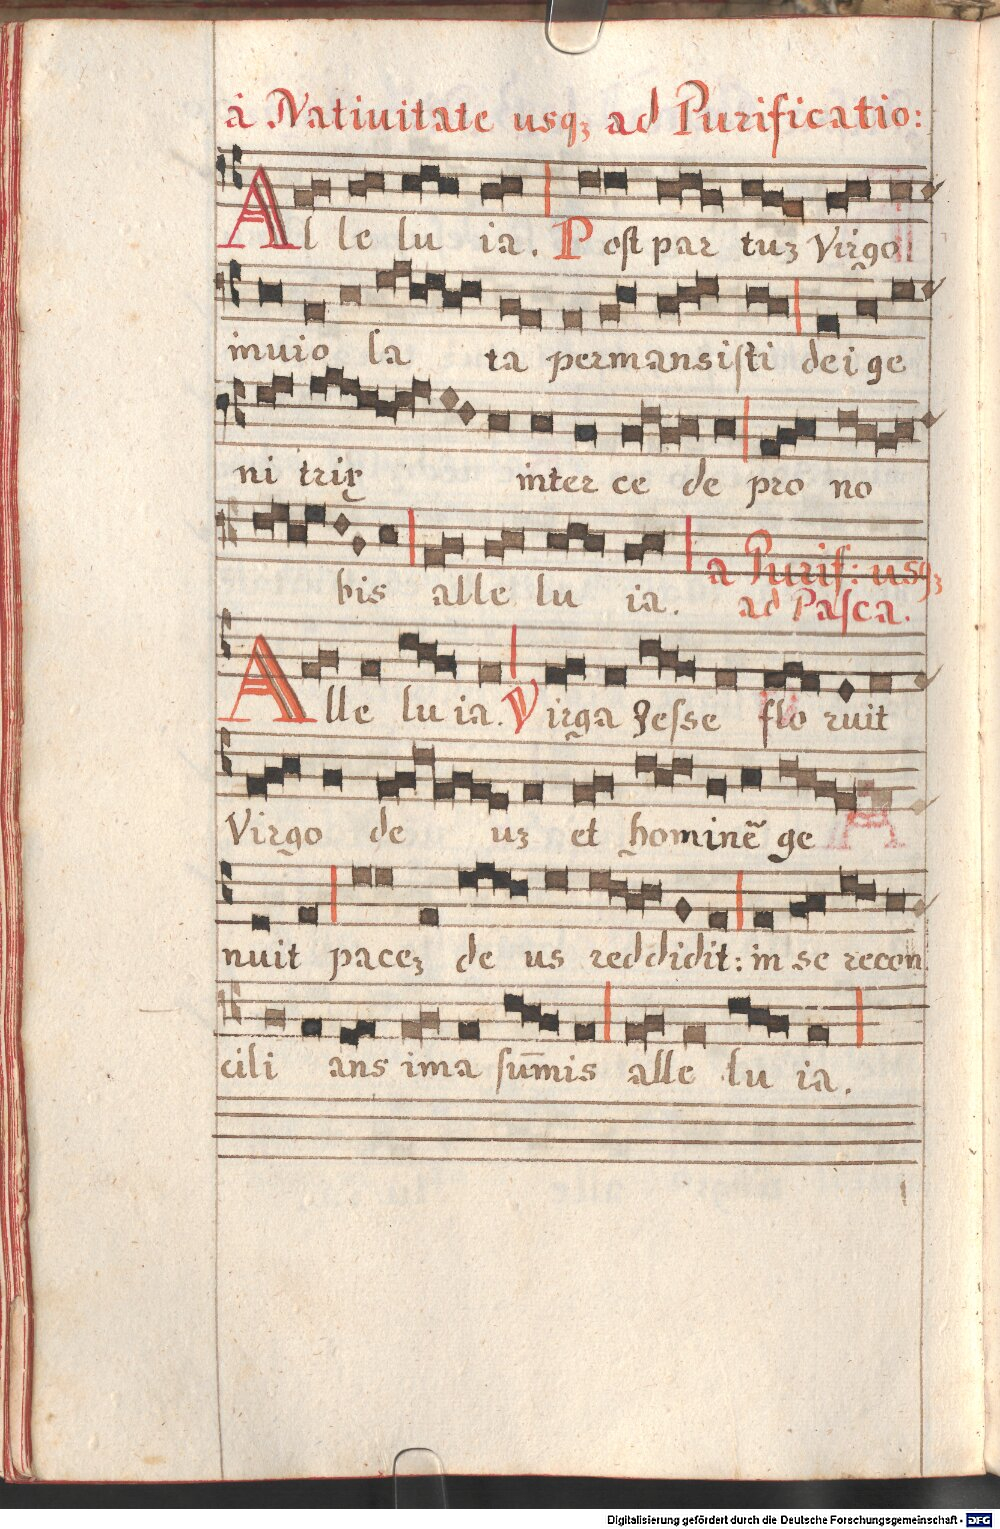 à Natiuitate usqꝫ ad Purificatio:
Al le lu ia. Post par tuꝫ Virgo
inuio la ta permansisti dei ge
ni trix inter ce de pro no
bis alle lu ia. a Purif: usqꝫ
ad Pasca.
Alle lu ia. Virga Jesse flo ruit
Virgo de uꝫ et hominē ge
nuit paceꝫ de us reddidit: in se recon
cili ans ima sum̄is alle lu ia.
Digitalisierung gefördert durch die Deutsche Forschungsgemeinschaft - DFG